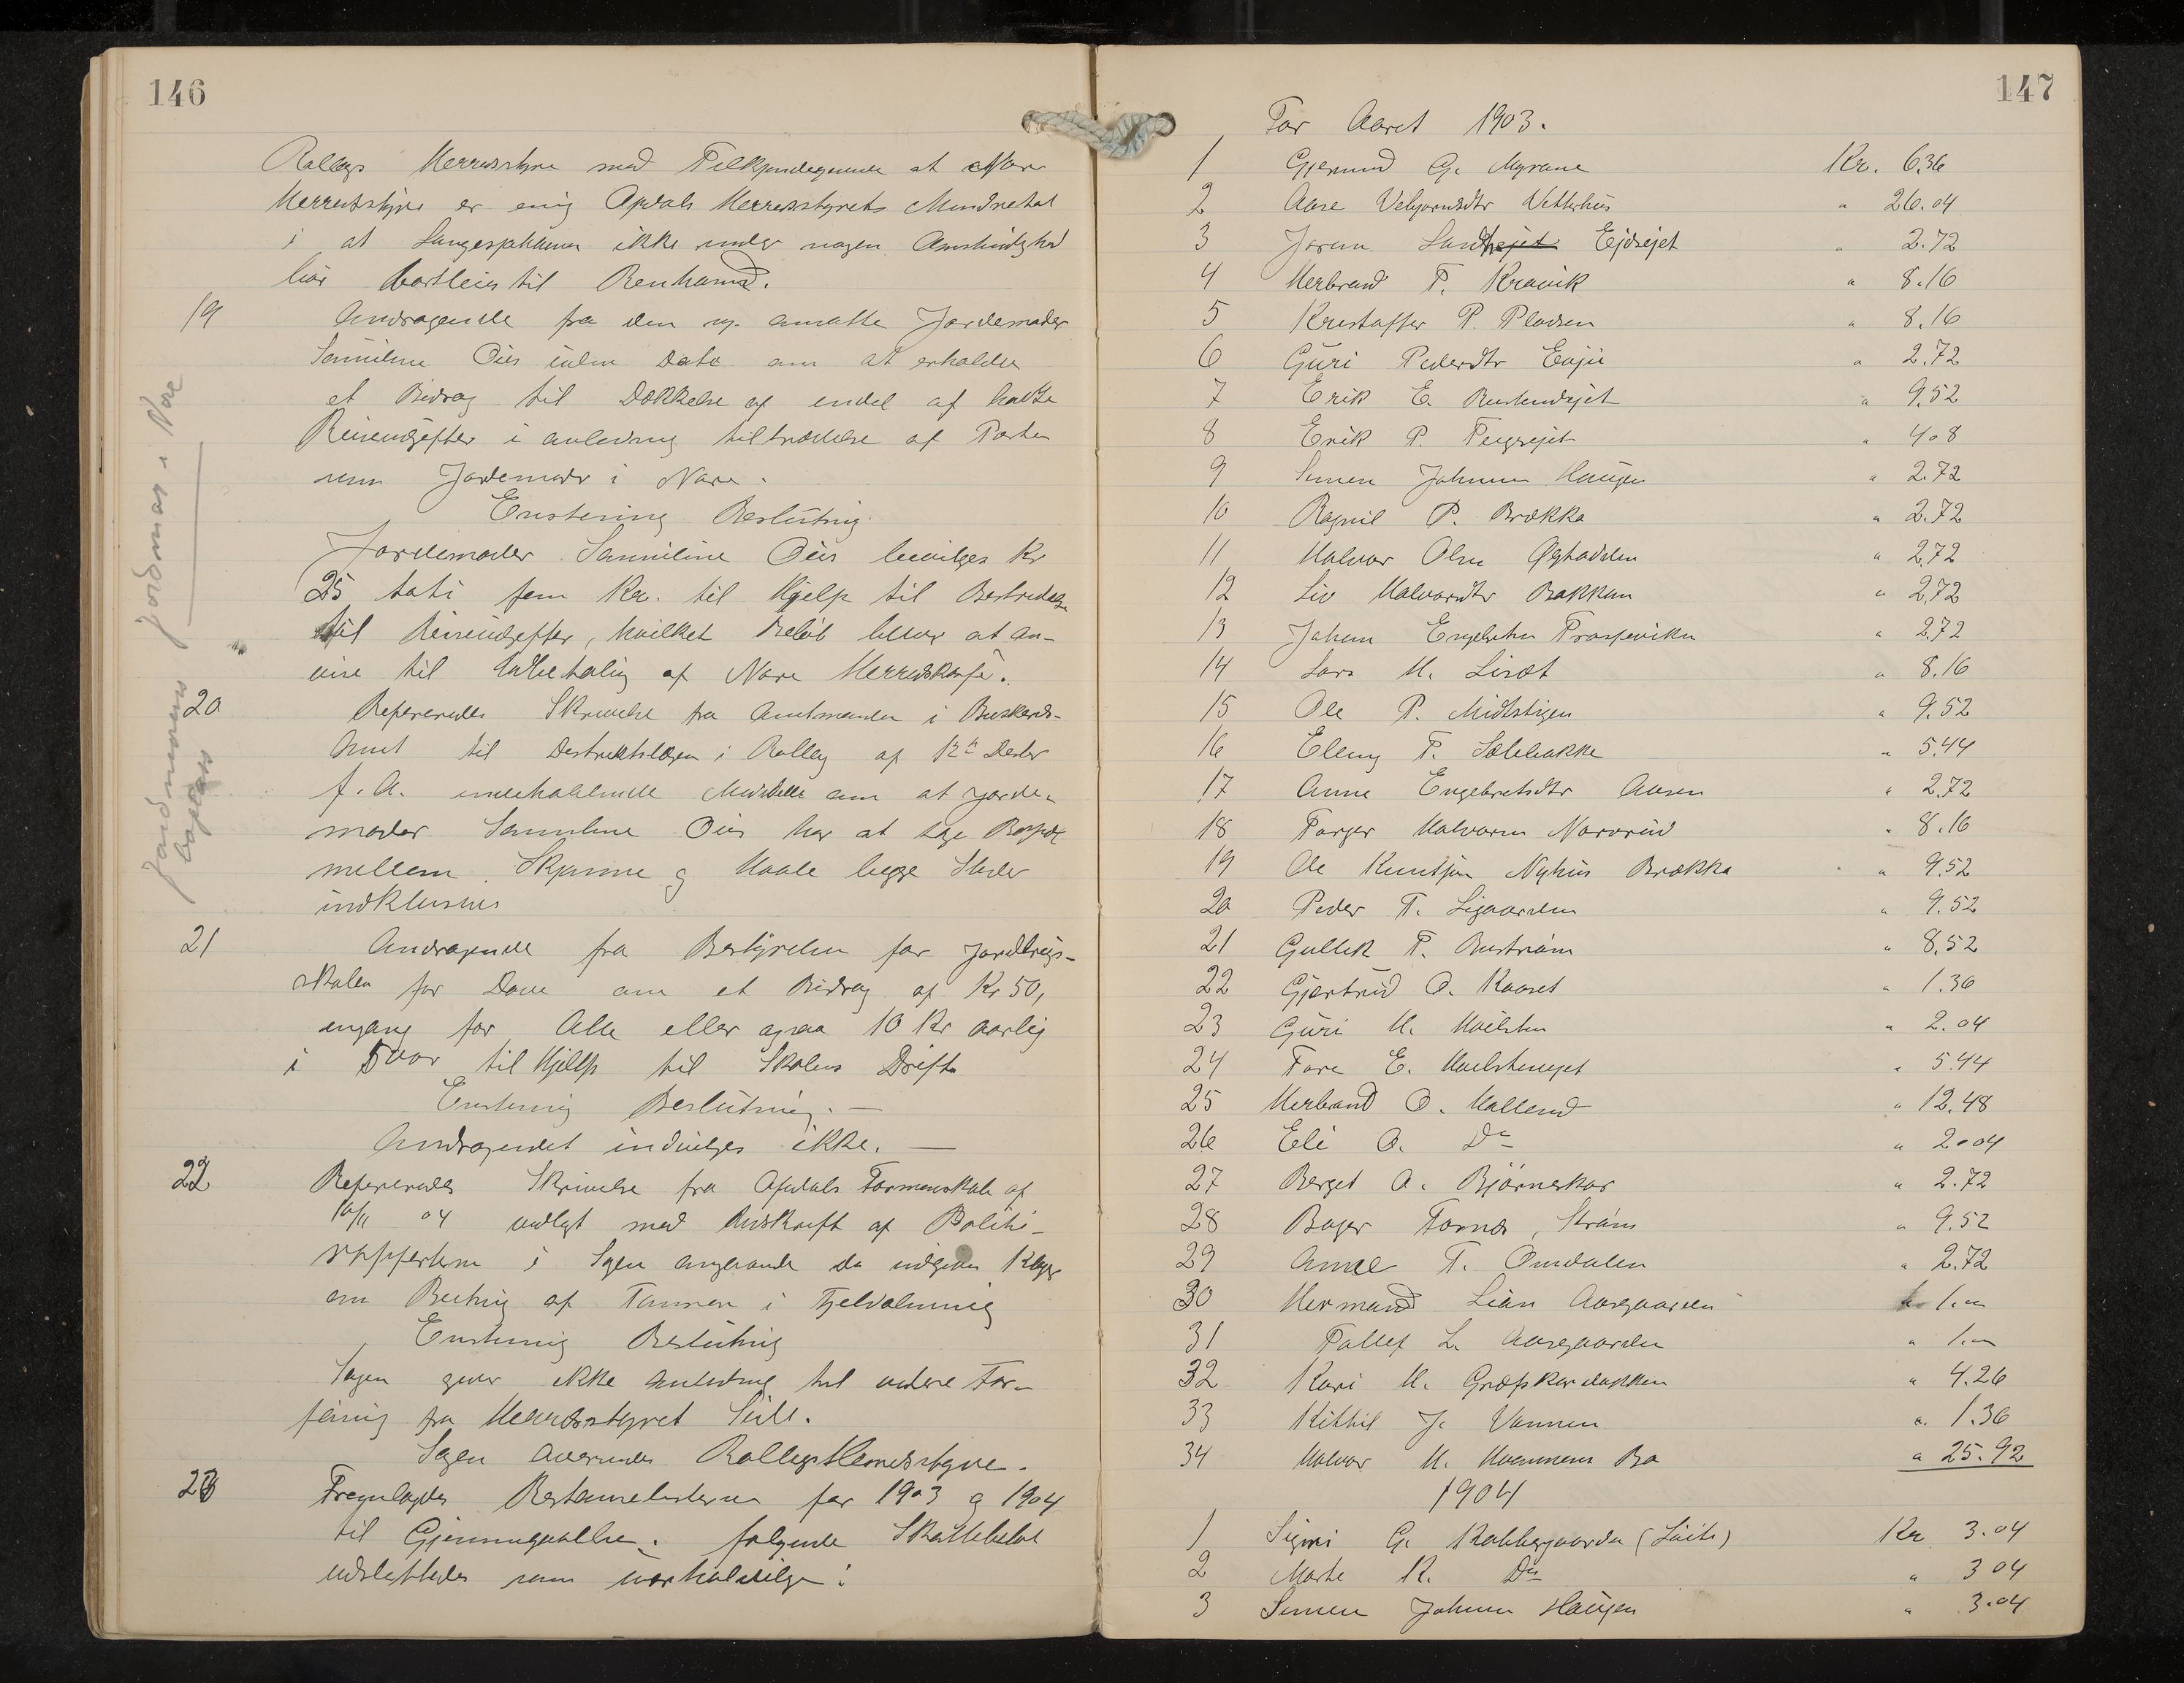 146
Rollags Herredsstyre med Tilkjendegivende at Nore
Herredsstyre er enig Opdals Herredsstyrets Mindretal
i at ikke under nogen Omstændighed
bör bortleies til Renhavnd.
19
Andragende fra den ny ansatte Jordemoder
Oiis uden Dato om at erholde
et Bidrag til Dækkelse af endel af havte
Reiseudgifter i anledning tiltrædelse af Posten
som Jordemoder i Nore.
Enstemig Beslutning.
Jordemoder Oiis bevilges Kr
25 toti fem Kr. til Hjelp til Bestridelse
til Reiseudgifter, hvilket Beløb bliver at an-
vise til Udbetaling af Nore Herredskasse.
Jordmor i Nore
Jordmorens
20
Refereredes Skrivelse fra Amtmanden i Buskeruds-
Amt til Destriktslægen i Rollag af 12te Decbr
f. A. indeholdende Meddelelse om at Jorde-
moder Oiis har at tage
mellem Skjønne og begge Steder
indklusive
21
Andragende fra Bestyrelsen for Jordbrugs-
skolen for Døve om et Bidrag af Kr 50,
engang for Alle eller ogsaa 10 Kr aarlig
i 5 aar til Hjelp til Skolens Drift
Enstemig Beslutning. —
Andragendet indvilges ikke. —
22
Refereredes Skrivelse fra Opdals Formenskab af
10/11 04 vedlagt med Udskrift af Politi-
rapporterne i Sagen angaaende de indgivne Klager
om Beiting af Tamren i Fjeldalmenig
Enstemig Beslutning
Sagen giver ikke anledning til videre For-
föinig fra Herredsstyret Side.
Sagen oversendes Rollags Herredsstyre.
23
Fremlagdes Restancelisterne for 1903 og 1904
til Gjennemgaaelse. følgende Skattebeløb
udslettedes som uerholdelige:
147
For Aaret 1903.
1 Gjermund G. Myrane Kr. 6.36
2 Aase Vebjørnsdtr Vetterhus " 26.04
3 Joran Eidsejet " 2.72
4 Herbrand T. Kravik " 8.16
5 Kristoffer P. Pladsen " 8.16
6 Guri Pedersdtr Evju " 2.72
7 Erik E. Rustendejet " 9.52
8 Erik P. " 4.08
9 Simen Johnsen Haugen " 2.72
10 Ragnil P. Brække " 2.72
11 Halvor Olsen " 2.72
12 Liv Halvorsdtr Bakken " 2.72
13 Johan " 2.72
14 Lars H. Liset " 8.16
15 Ole P. Midtstigen " 9.52
16 Elling T. " 5.44
17 Anne Engebretsdtr Aasen " 2.72
18 Torger Halvorsen Norverud " 8.16
19 Ole Knutsen Nyhus Brække " 9.52
20 Peder T. Ligaarden " 9.52
21 Gullik T. Bustrøm " 8.52
22 Gjertrud O. Kaaset " 1.36
23 Guri H. " 2.04
24 Tore E. " 5.44
25 Herbrand O. Hallend " 12.48
26 Eli O. Do " 2.04
27 Berget O. Bjørneskar " 2.72
28 Boger Tornes, Strøm " 9.52
29 Anne T. Omdalen " 2.72
30 Hermand Lian Aasgaarden " 1.00
31 Tollef L. Aasgaarden " 1.00
32 Kari H. " 4.26
33 Kittil J. Vannen " 1.36
34 Halvor H. Bø " 25.92
1904
1 Signi G. (Löite) Kr 3.04
2 Marte K. Do " 3 04
3 Simen Johnsen Haugen " 3.04